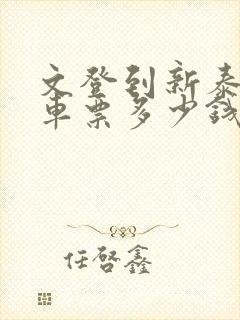 文登到新泰
车票多少钱
任啓鑫